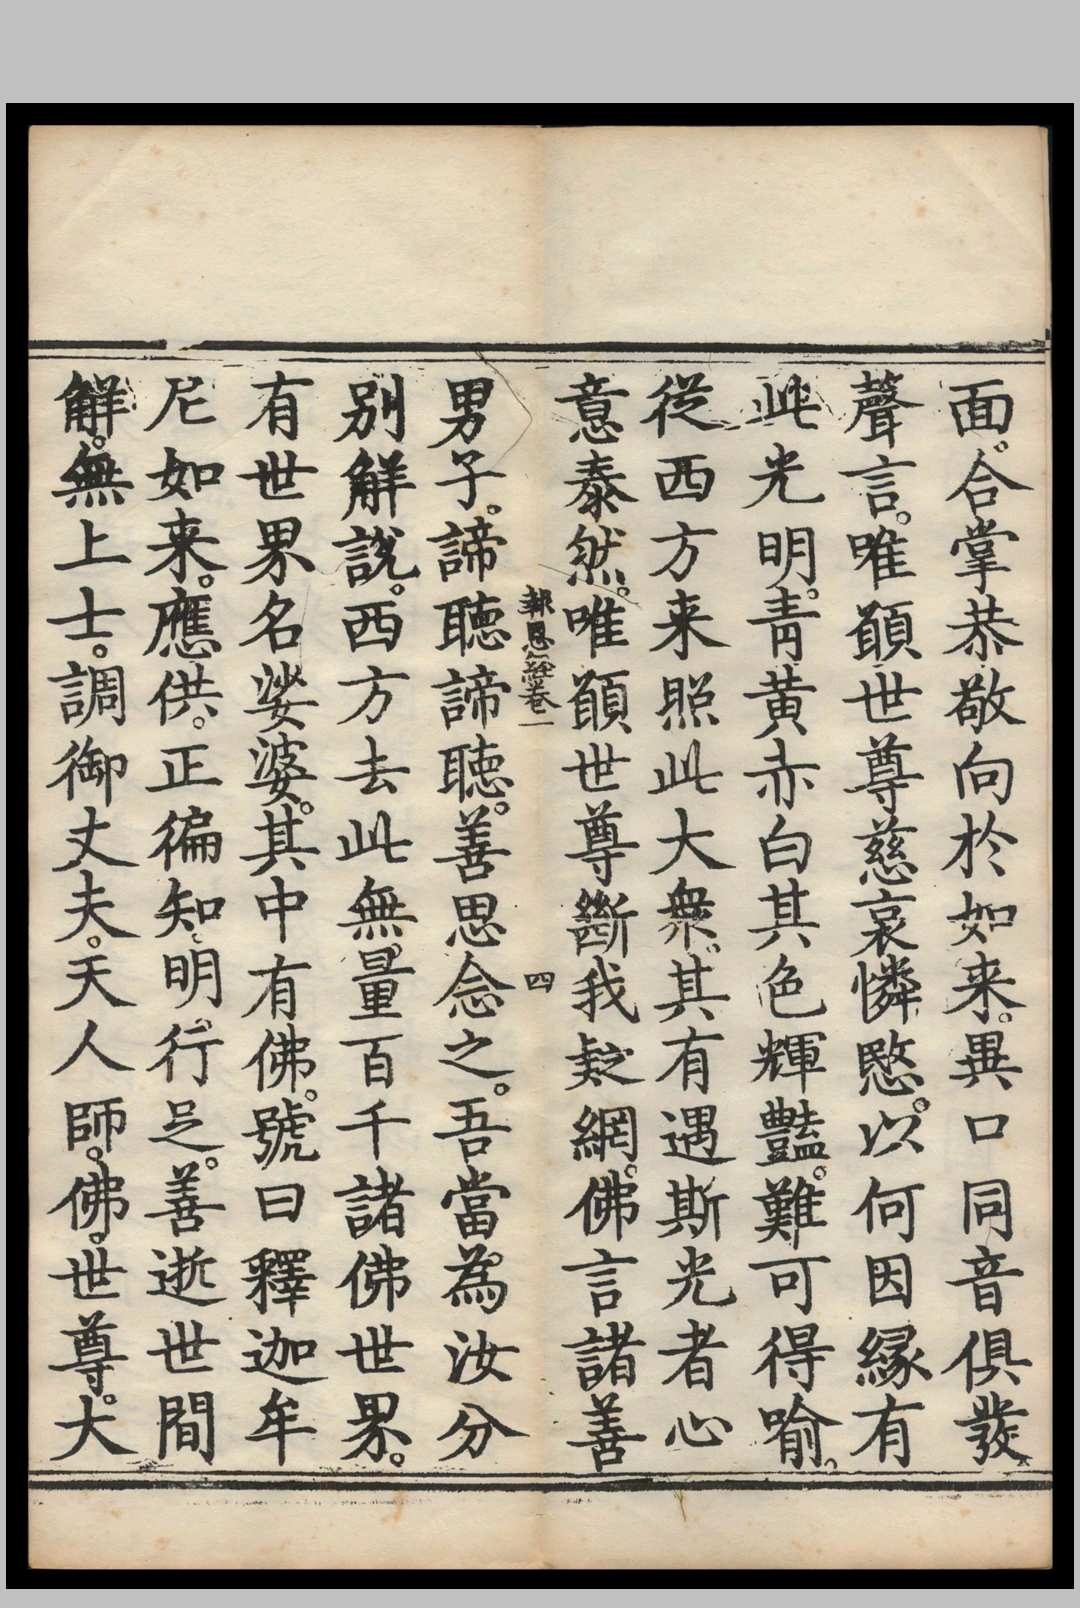 面。合掌恭敬向於如来。異口同音俱發
聲言。唯願世尊慈哀憐愍。以何因緣有
此光明。青黃赤白其色輝豔。難可得喻。
從西方来照此大衆。其有遇斯光者心
意泰然。唯願世尊斷我疑網。佛言諸善
報恩經卷一
四
男子。諦聽諦聽。善思念之。吾當為汝分
別解說。西方去此無量百千諸佛世界。
有世界名娑婆。其中有佛。號曰釋迦牟
尼如来。應供。正徧知。明行足。善逝世間
解。無上士。調御丈夫。天人師。佛。世尊。大